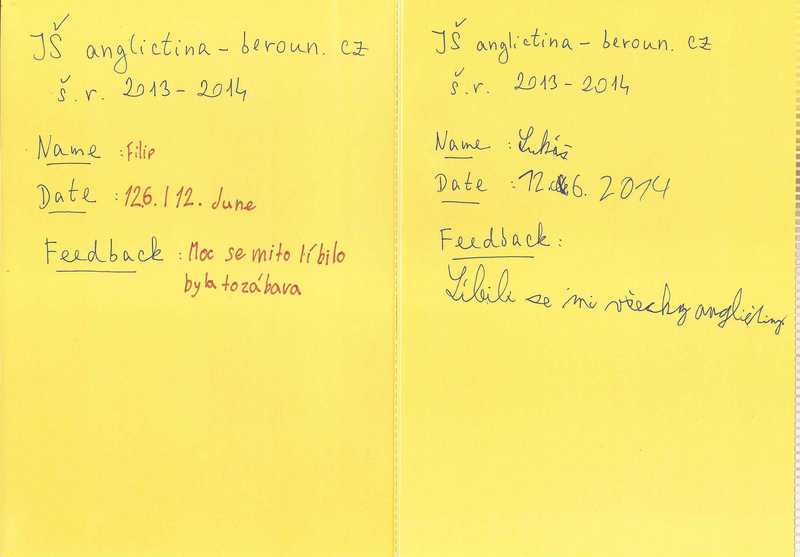 JŠ anglictina - beroun. cz
š. r. 2013 - 2014
Name : Filip
Date : 12.6. / 12. June
Feedback : Moc se mito líbilo
byla to zábava
JŠ anglictina - beroun. cz
š. r. 2013 - 2014
Name : Lukáš
Date : 12. 6. 2014
Feedback :
Líbili se mi všechny angličtiny